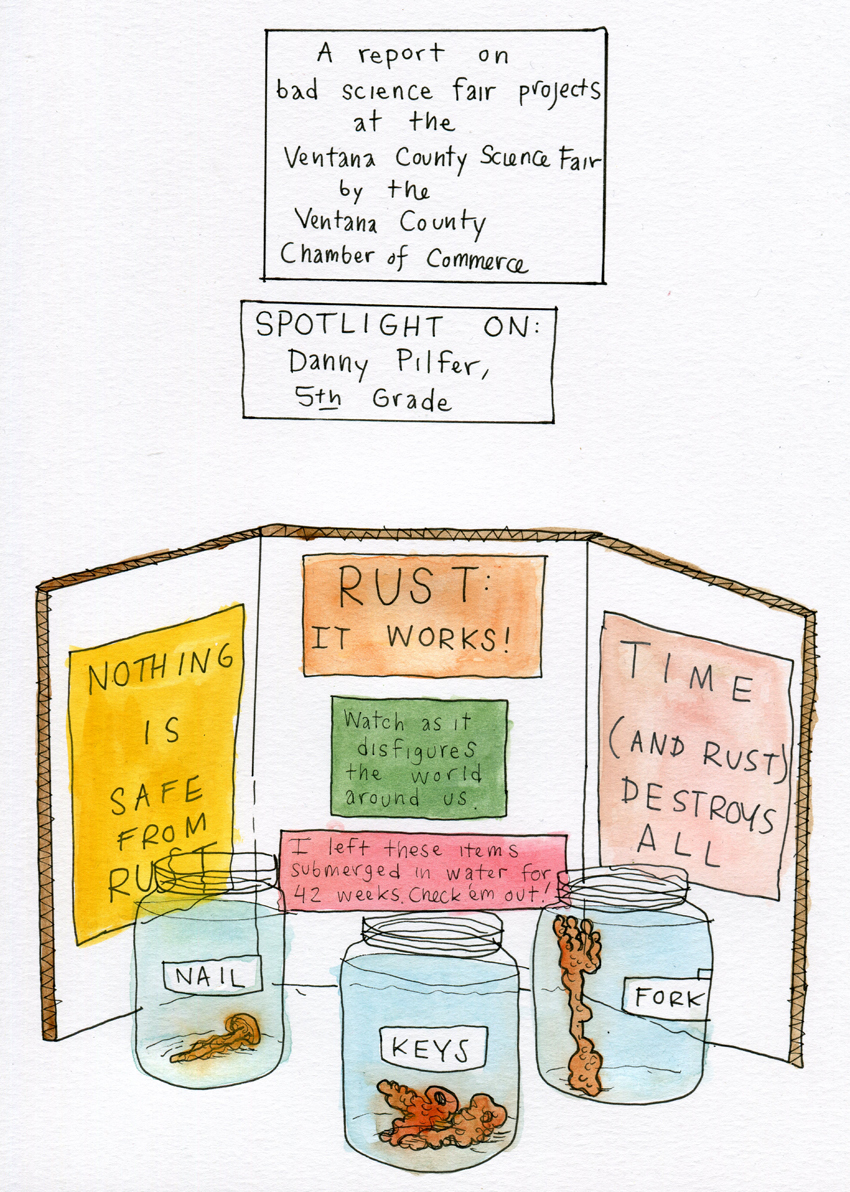 A report on
bad science fair projects
at the
Ventana County Science Fair
by the
Ventana County
Chamber of Commerce
SPOTLIGHT ON:
Danny Pilfer,
5th Grade
NOTHING
IS
SAFE
FROM
RUST
RUST:
IT WORKS!
Watch as it
disfigures
the world
around us.
I left these items
submerged in water for
42 weeks. Check 'em out!
TIME
(AND RUST)
DESTROYS
ALL
NAIL
KEYS
FORK